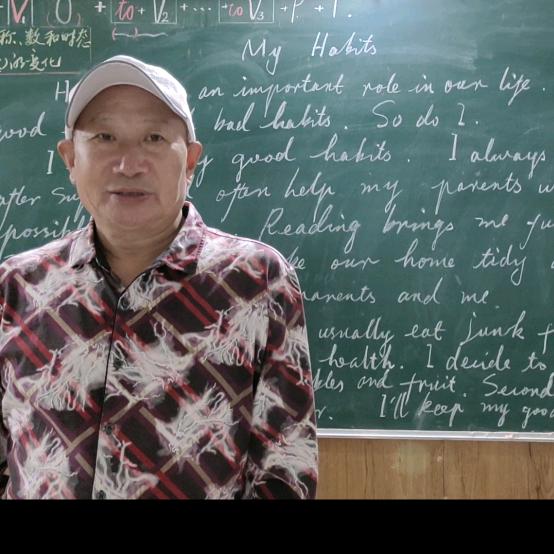 V. O + to + V₂ + ... + to V₃ + P. + T.
称、数和时态
的变化
My Habits
H an important role in our life.
good bad habits. So do I.
I y good habits. I always
after su often help my parents w
possibl Reading brings me fu
ke our home tidy
parents and me.
usually eat junk f
health. I decide to
ples and fruit. Second
r. I'll keep my good